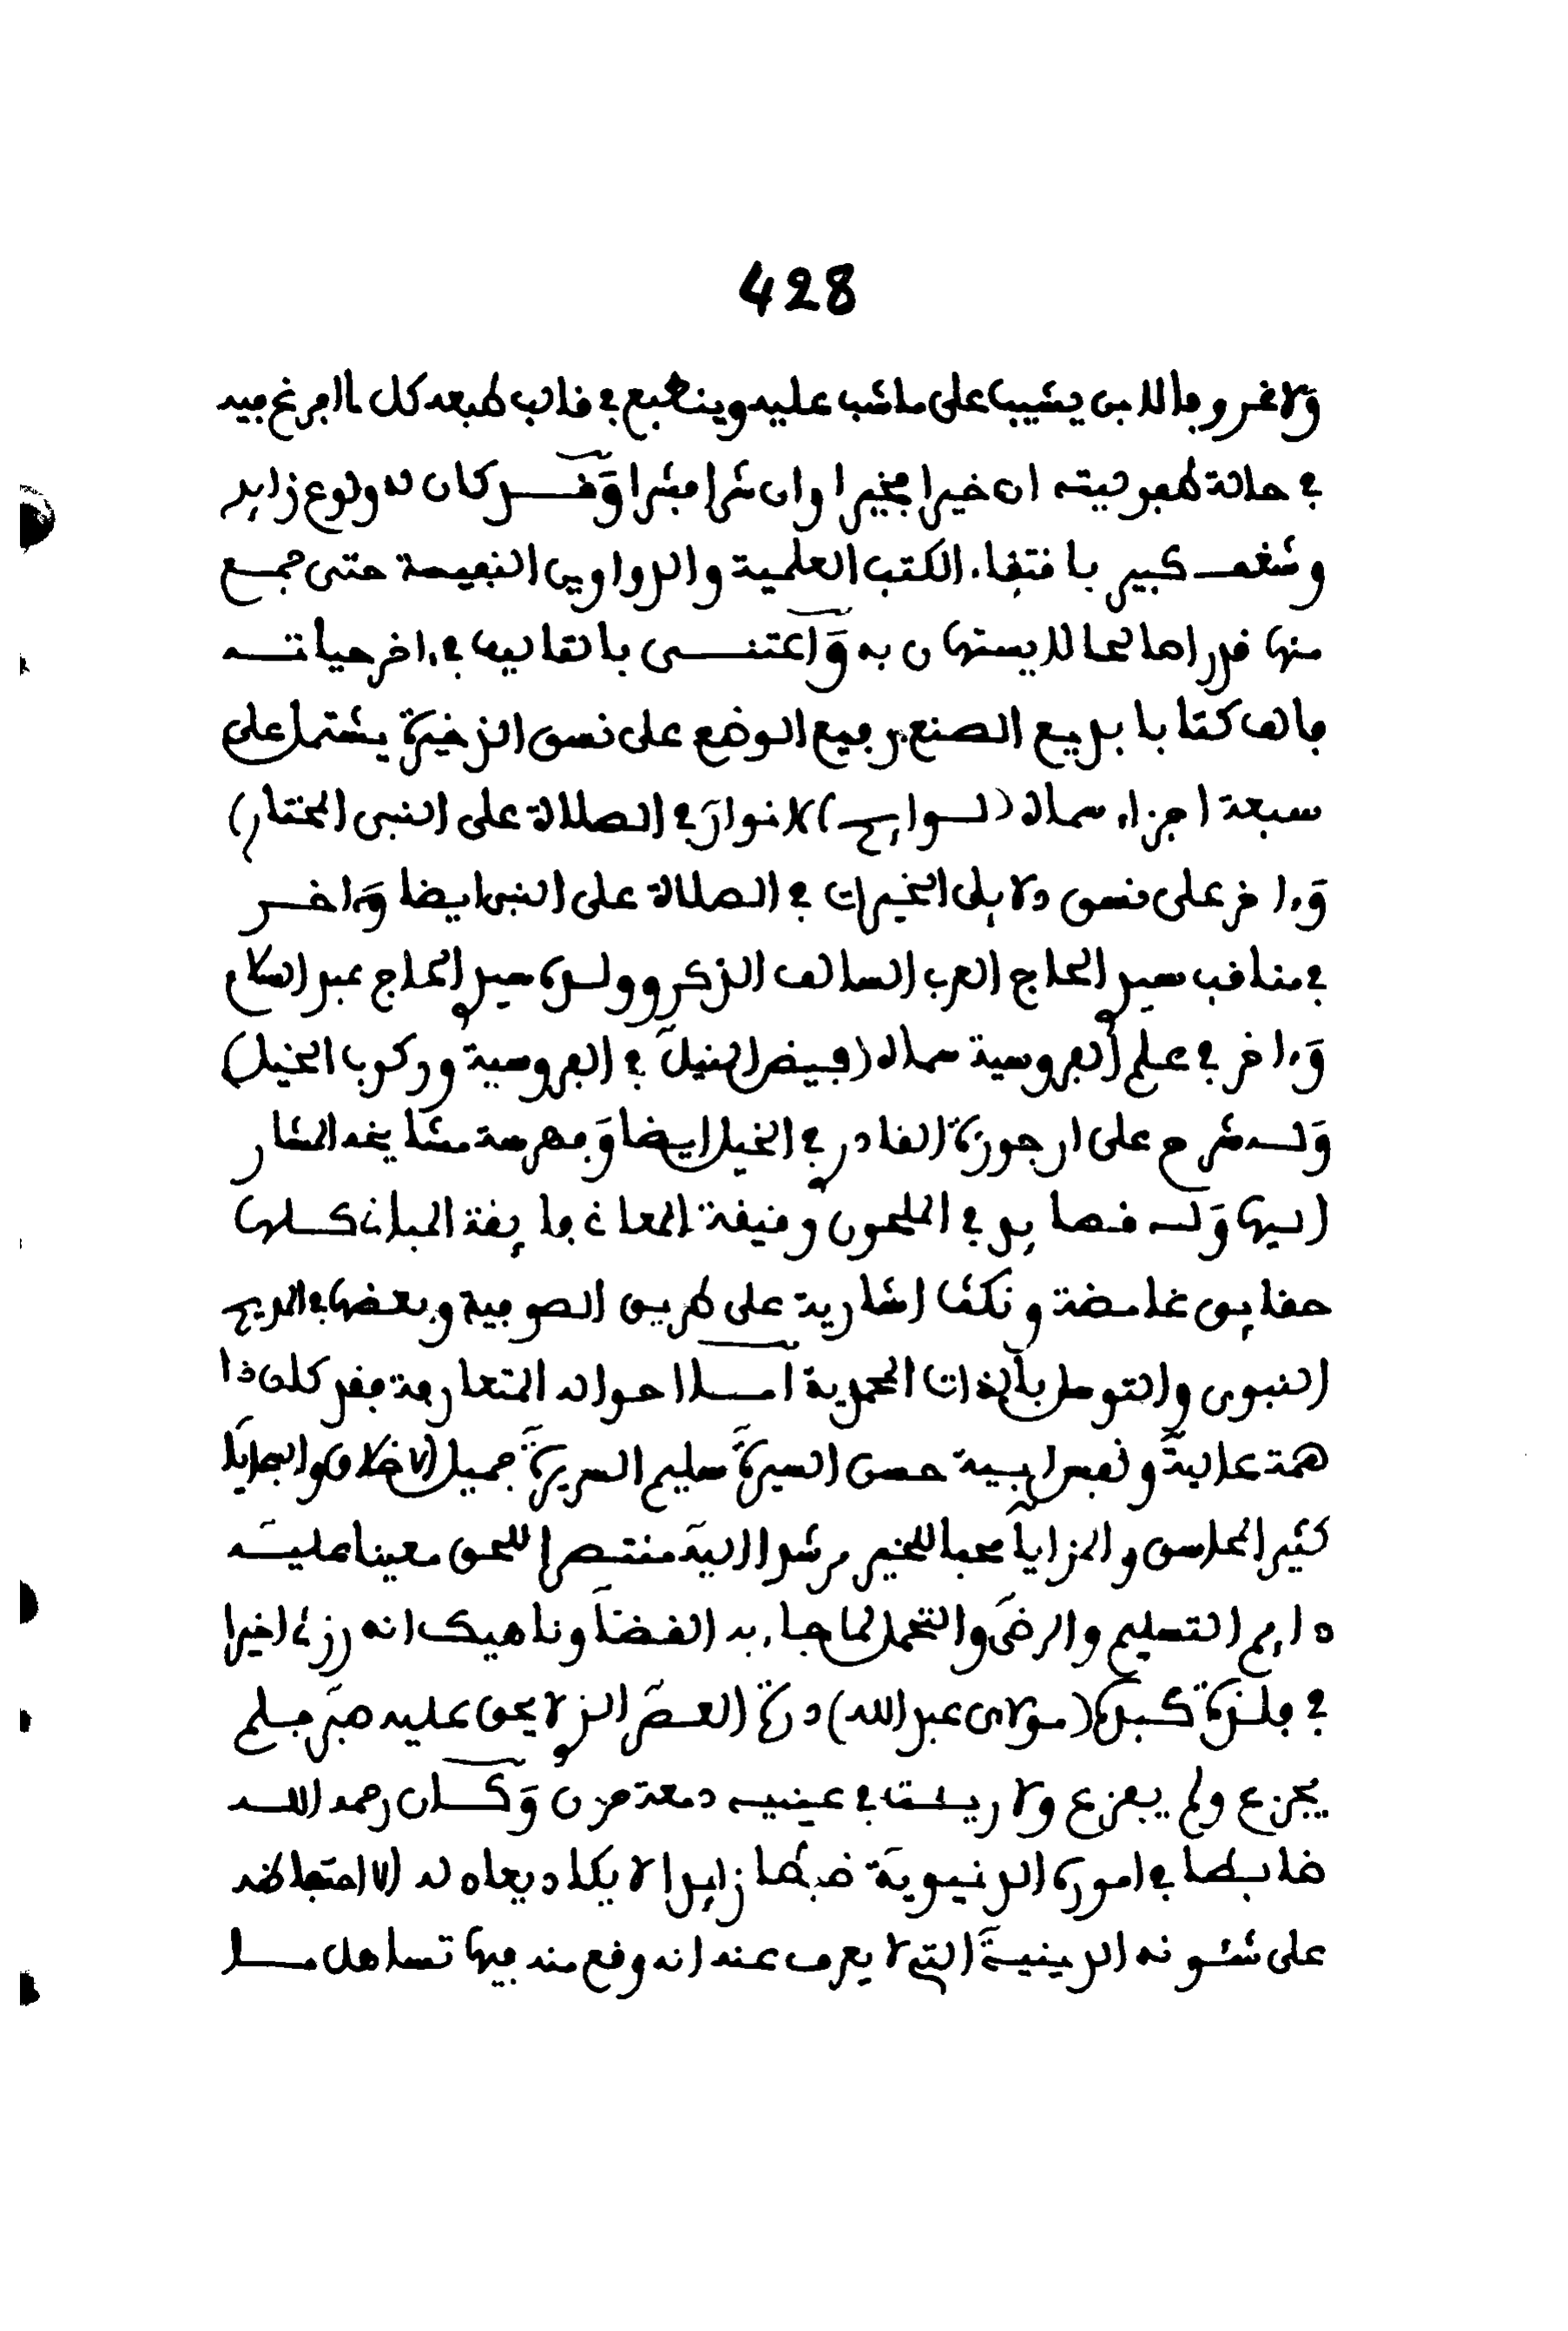 428
ولا غرو فالابن يشيب على ما شب عليه وينطبع في قالب طبعه كل ما افرغ فيه
في حالة طفوليته ان خيرا فخيرا وان شرا فشرا وقد كان له ولوع زايد
وشغف كبير باقتناء الكتب العلمية والدواوين النفيسة حتى جمع
منها قدرا صالحا لا يستهان به واعتنى بالتاليف في ءاخر حياته
فالف كتابا بديع الصنع رفيع الوضع على نسق الذخيرة يشتمل على
سبعة اجزاء سماه (لوايح الانوار في الصلاة على النبي المختار)
وءاخر على نسق دلايل الخيرات في الصلاة على النبي ايضا وءاخر
في مناقب سيدي الحاج العرب السالف الذكر وولده سيدي الحاج عبد السلام
وءاخر في علم الفروسية سماه (فيض النيل في الفروسية وركوب الخيل)
وله شرح على ارجوزة القادري في الخيل ايضا وفهرسة مشايخه المشار
اليها وله قصايد في الملحون رقيقة المعاني فايقة المباني كلها
حقايق غامضة ونكت اشارية على طريق الصوفية وبعضها في المديح
النبوي والتوسل بالذات المحمدية اما احواله المتعارفة فقد كان ذا
همة عالية ونفس ابية حسن السيرة سليم السريرة جميل الاخلاق والسجايا
كثير المحاسن والمزايا محبا للخير مرشدا اليه منتصرا للحق معينا عليه
دايم التسليم والرضى والتحمل لما جاء به القضا وناهيك انه رزئ اخيرا
في فلذة كبده (مولاي عبد الله) درة العصر الذي لا يحق عليه صبر فلم
يجزع ولم يفزع ولا ريئت في عينيه دمعة حزن وكان رحمه الله
ضابطا في اموره الدنيوية ضبطا زايدا لا يكاد يعادله الا احتفاظه
على شئونه الدينية التي لا يعرف عنه انه وقع منه فيها تساهل ما